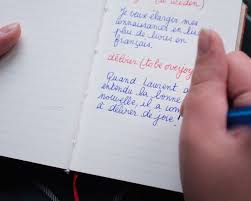 (to widen)
Je veux élargir mes
connaissances en
plus de livres en
français.
délirer (to be overjoy
Quand Laurent a
entendu la bonne
nouvelle, il a
et délirer de joie.